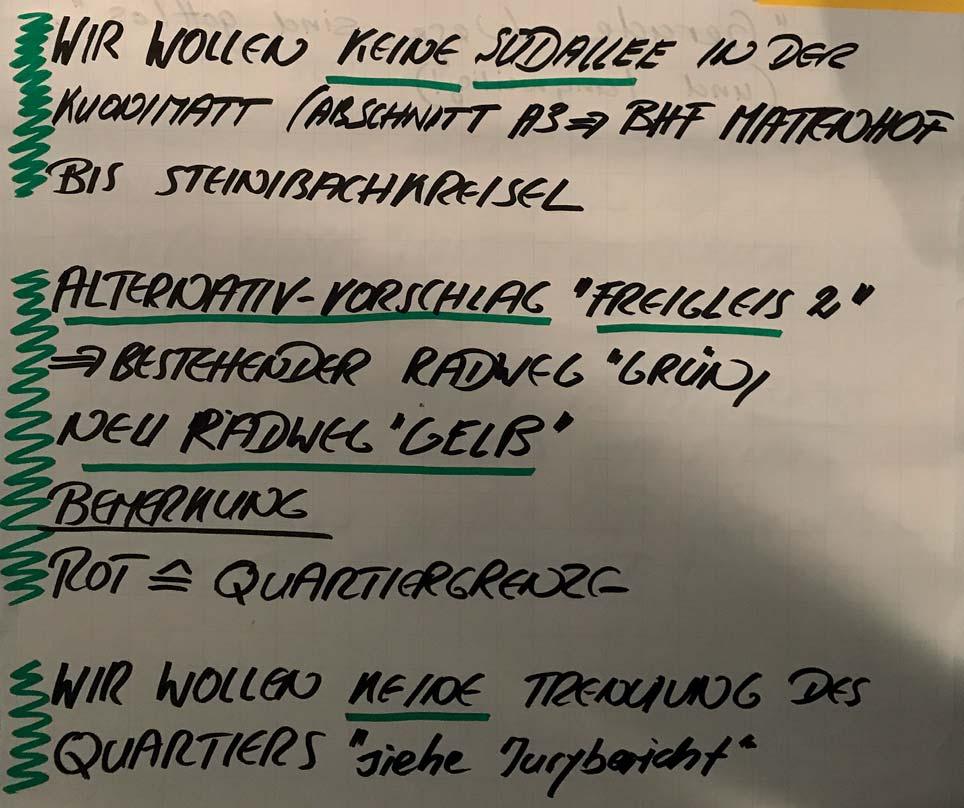 WIR WOLLEN KEINE SÜDALLEE IN DER
KUONIMATT (ABSCHNITT A3 ⇒ BHF MATTENHOF
BIS STEINIBACHKREISEL
ALTERNATIV-VORSCHLAG "FREIGLEIS 2"
⇒ BESTEHENDER RADWEG "GRÜN,
NEU RADWEG "GELB"
BEMERKUNG
ROT ≙ QUARTIERGRENZE
WIR WOLLEN KEINE TRENNUNG DES
QUARTIERS "siehe Jurybericht"